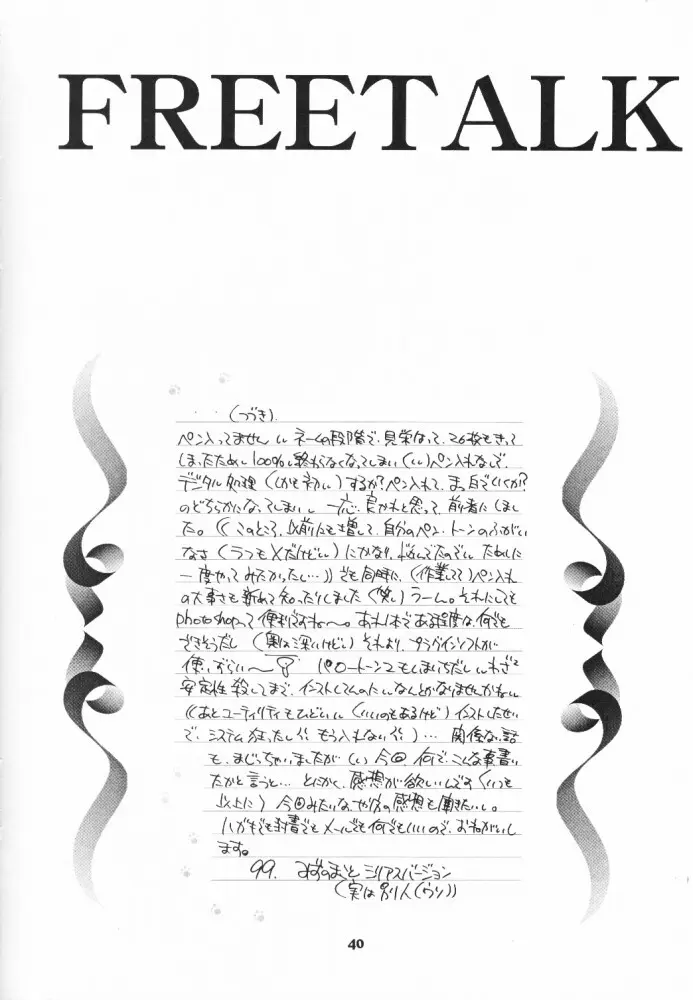 FREETALK
(つづき).
ペン入ってません ネームの段階で、見栄なって、26枚もきって
しまったため 100%終わらなくなってしまい(い)ペン入れなしで、
デジタル処理(しかも初)するか?ペン入れて、まっ白でいくか?
のどちらかになってしまい 一応、良かれと思って、前者にしまし
た。((このところ、以前にも増して、自分のペン・トーンのふがい
なさ(うつもメだけど)にかなり、悩んでたので ために
一度やってみたかったし…))でも同時に、(作業してて)ペン入れ
の大事さも新めて知ったりしました(笑)うーん。それにしても
photoshopって便利ですね〜。あれ1本である程度な何でも
できそうだし(奥は深いけど)それより、プラグインソフトが
使いづらい〜 パロトーン2もしまいちだし わざと
安定性殺してまで、インストしてんのになんとかなりませんかね
((あとユーティリティもひどい(いいのもあるけど)インストしたせい
で、システム狂ったし もう入れない))… 関係ない話
も、まじっちゃいましたが(い)今回 何で、こんな事書い
たかと言うと… とにかく、感想が欲しいんです(いつも
以上に)今回みたいなやり方の感想も聞きたいし。
ハガキでも封書でもメールでも何でもいいので、おねがいし
ます。
99. みずのまこと シリアスバージョン
(実は別人(ウソ))
40